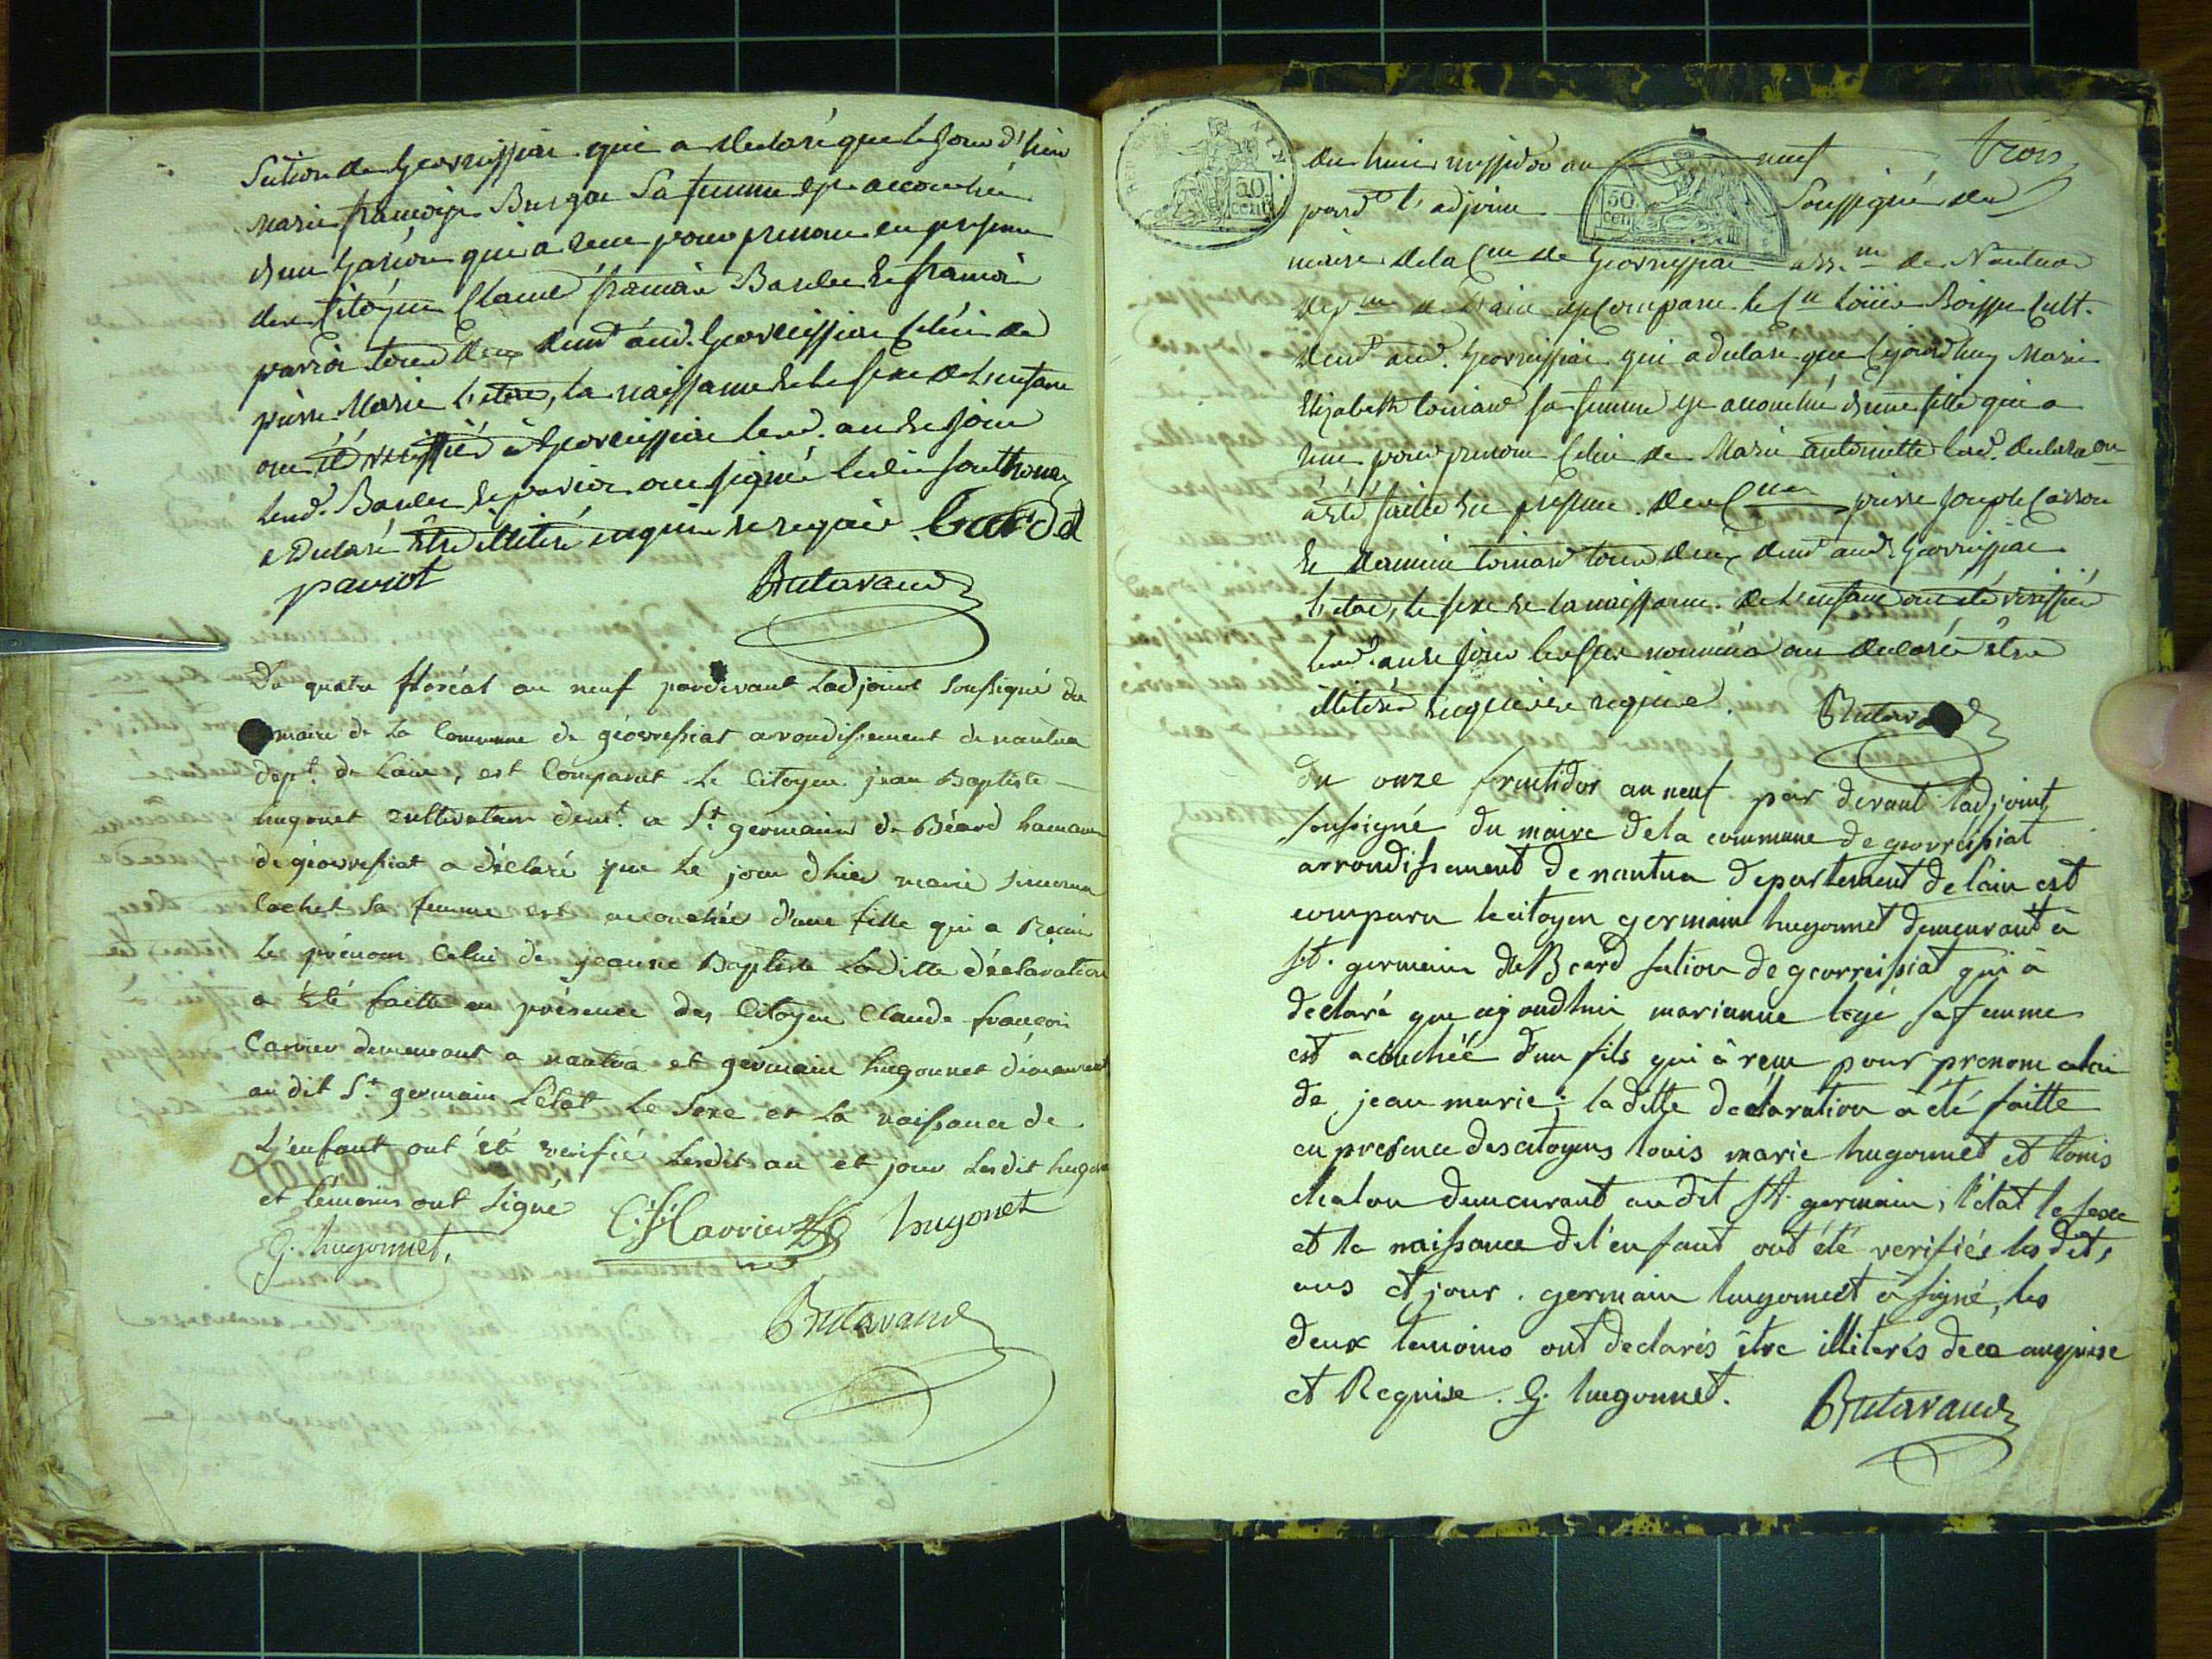 Section de Geovreissiat qui a declaré que le jour d'hier
Marie françoise Burgoz sa femme est accouchée
d'un Garçon qui a recu pour prenom en presence
des Citoyens Claude françois Bardet et françois
paviot tous deux demt aud. Geovreissiat Celui de
pierre Marie l'etat, la naissance et le sexe de l'enfant
ont été veriffiés à Geovreissiat lesd. an et jour
lesd. Bardet et paviot ont signé
a declaré être illitéré enquis et requis. Bardet
paviot
Butavand
Du quatre floréal an neuf pardevant Ladjoint Soussigné du
maire de La Commune de géovressiat arrondissement de nantua
dept. de Lain, est Comparut Le Citoyen jean Baptiste
hugonet cultivateur demt. a St germain de Béard hameau
de géovressiat a déclaré que le jour dhier marie
Cochet Sa femme est accouchée d'une fille qui a Reçue
Le prénom Celui de jeanne Baptiste Laditte déclaration
a été faitte en présence des Citoyen Claude françois
Carrier demeurant a nantua et germain hugonnet démeurant
au dit St germain L'état Le Sexe et La naissance de
L'enfant ont été verifié Lesdit an et jour Lesdit hugonet
et témoins ont Signé
C. f. Carrier
hugonet
G. hugonnet.
Butavand
trois
du huit messidor an neuf
pard. l'adjoint Soussigné du
maire de la Cne de Geovreissiat arr.nt de Nantua
dept de l'ain est Comparu le Cn Louis Boisson Cult.
demt aud. Geovreissiat qui a declaré que Cejourdhuy Marie
Elizabeth Toinard sa femme est accouchée d'une fille qui a
recu pour prenom Celui de Marie antoinette lad. declaraon
a été faitte en presence des Cens pierre Joseph
et Toinard tous deux demt aud. Geovreissiat
l'etat, le sexe et la naissance de l'enfant ont été veriffiés
lesd. an et jour les sus nommés ont declaré être
illiterés enquis et requis.
Butavand
Du onze fructidor an neuf par devant ladjoint
soussigné du maire de la commune de geovreissiat
arrondissement de nantua departement de lain est
comparu le citoyen germain hugonnet demeurant à
st. germain de Beard section de geovreissiat qui à
declaré que cejourdhui marianne legé sa femme
est acouchée d'un fils qui à reçu pour prenom celui
de jean marie; la ditte declaration à été faitte
en presence des citoyens louis marie hugonnet et louis
chalon demeurant au dit st. germain, l'état le sexe
et la naissance de l'enfant ont été verifiés les dits
ans et jour. germain hugonnet à signé, les
deux temoins ont declarés être illiterés de ce enquise
et Requise. G. hugonnet.
Butavand
50
cent
50
cen